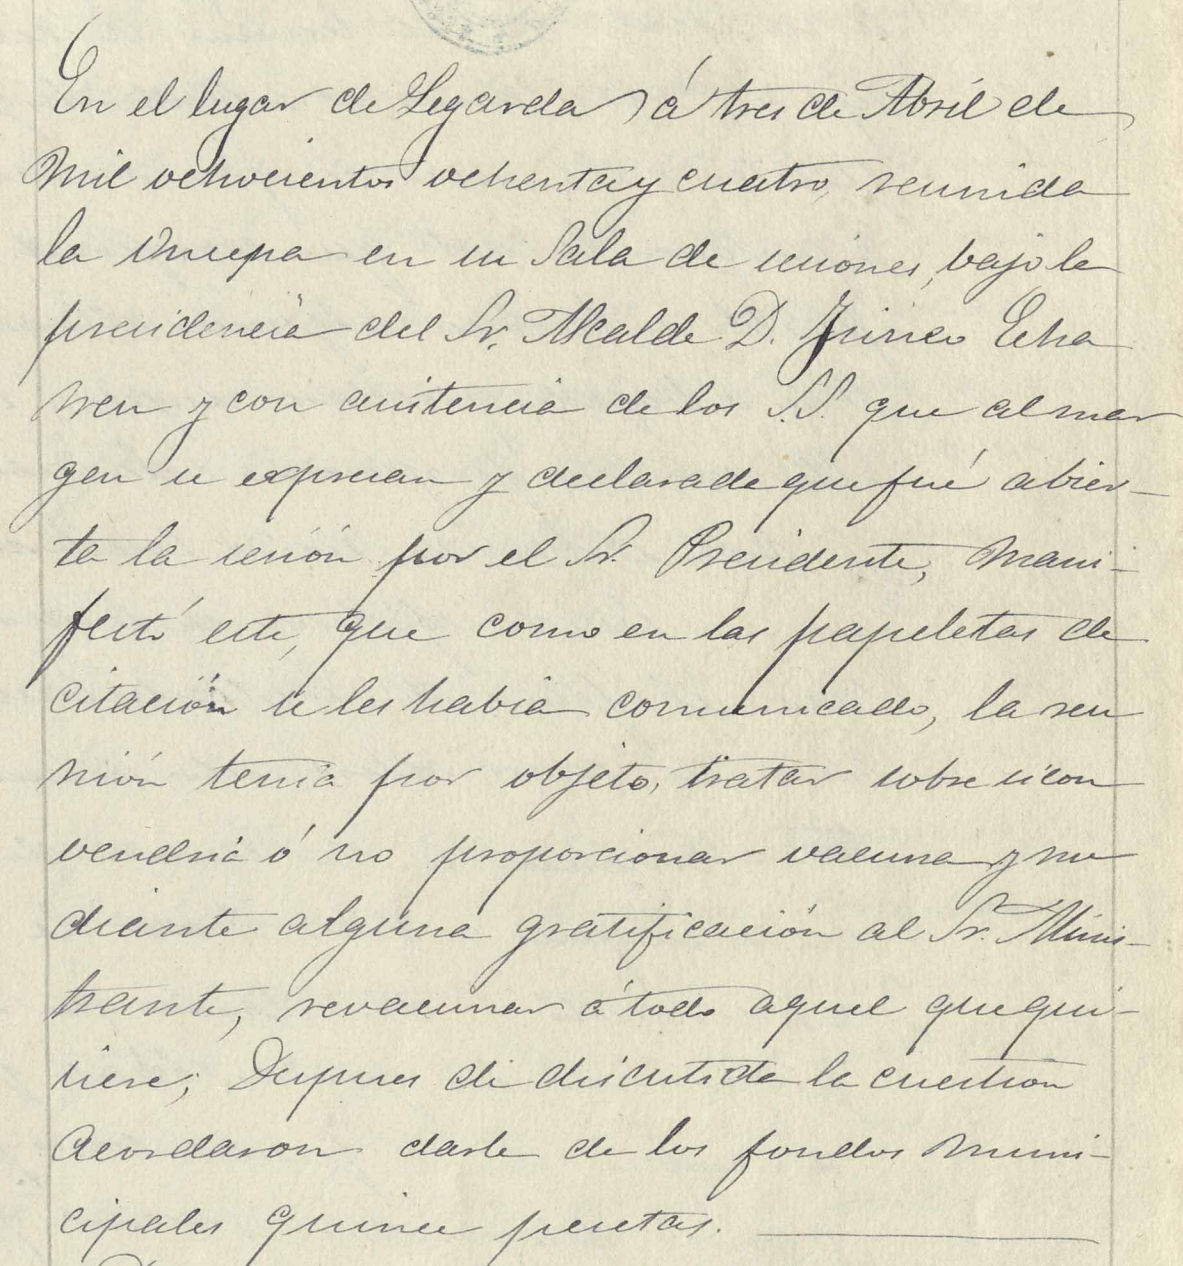 En el lugar de Legarda á tres de Abril de
mil ochocientos ochenta y cuatro, reunida
la en su Sala de sesiones, bajo la
presidencia del Sr. Alcalde D. Echa
rren y con asistencia de los S.S. que al mar
gen se expresan y declarada que fué abier-
ta la sesión por el Sr. Presidente, mani-
festó este, que como en las papeletas de
citación se les habia comunicado, la reu
nión tenia por objeto, tratar sobre si con
vendria ó no proporcionar vacuna y me
diante alguna gratificación al Sr. Minis-
trante, revacunar á todo aquel que qui-
siere; Despues de discutida la cuestion
acordaron darle de los fondos muni-
cipales quince pesetas.